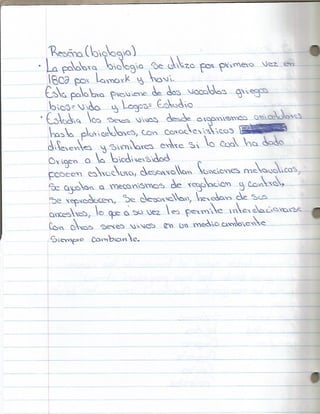 Reseña (biologia)
• La palabra biologia se utilizo por primera vez en
1802 por Lamark y
Esta palabra proviene de dos vocablos griegos
bios= vida y Logos= Estudio
• Estudia los seres vivos desde organismos unicelulares
hasta pluricelulares, con caracteristicas
diferentes y similares entre si lo cual ha dado
Origen a la biodiversidad
poseen estructura, desarrollan funciones metavolicas,
Se ajustan a mecanismos de regulacion y control,
Se reproducen, Se desarrollan, heredan de sus
ancestros, lo que a su vez les permite interrelacionarse
Con otros seres vivos en un medio ambiente
Siempre cambiante.